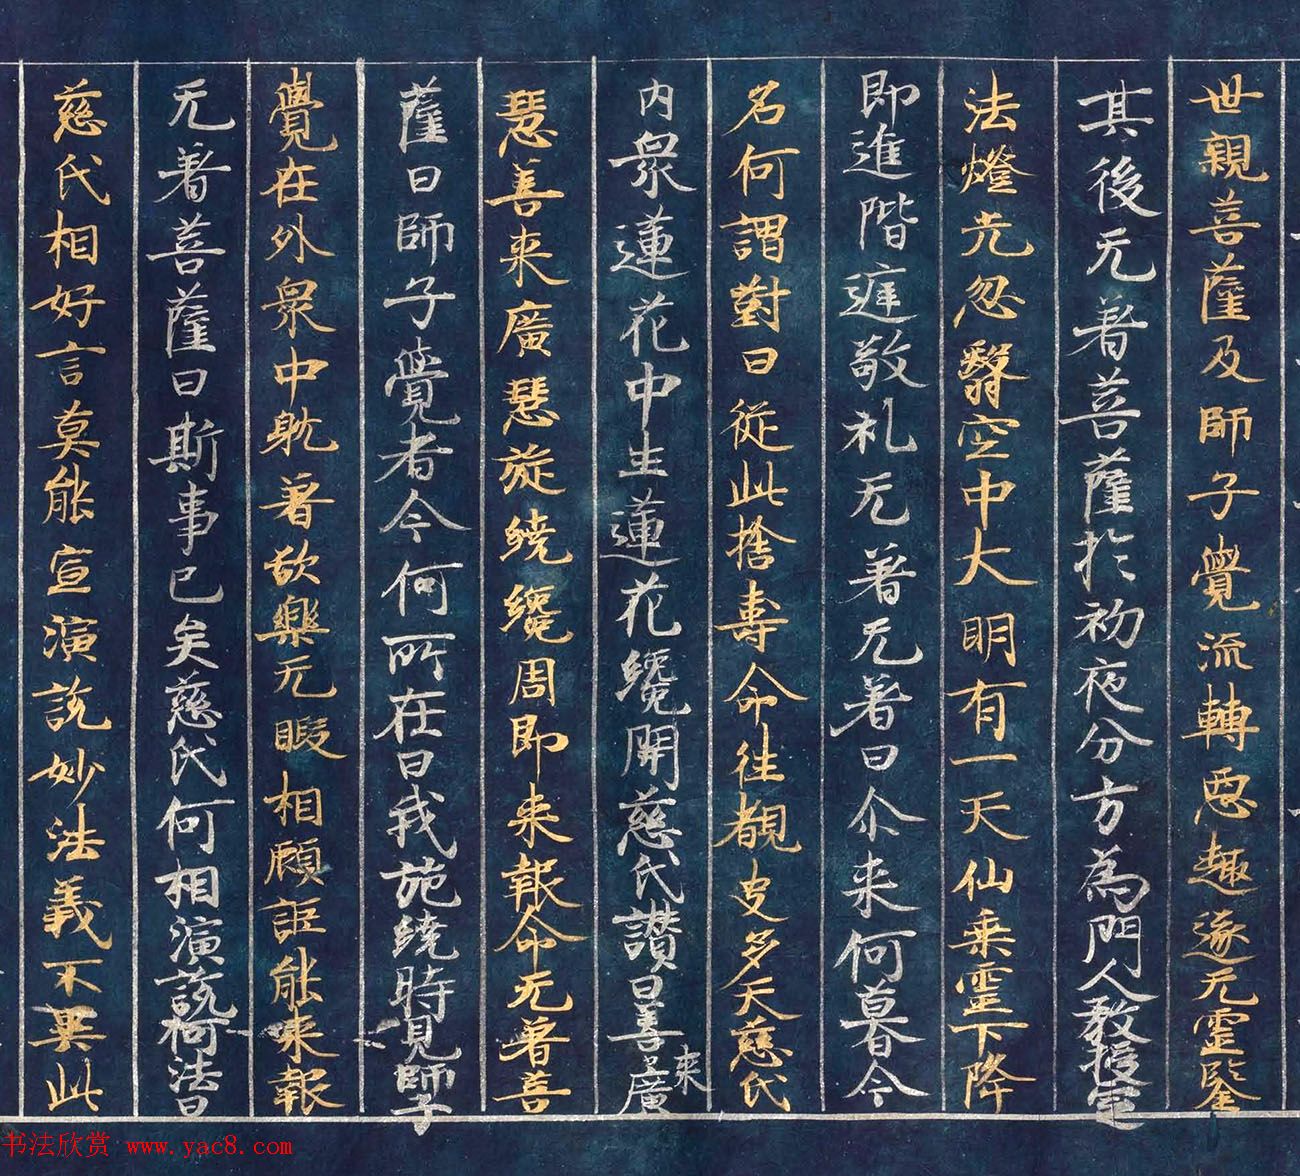 世親菩薩及師子覺流轉惡趣遂无靈鑒
其後无著菩薩於初夜分方為門人教授定
法燈光忽翳空中大明有一天仙乘靈下降
即進階庭敬礼无著无著曰尒来何暮今
名何謂對曰從此捨壽命往覩史多天慈氏
内衆蓮花中生蓮花纔開慈氏讃曰善来廣
慧善来廣慧旋繞纔周即来報命无著善
薩曰師子覺者今何所在曰我旋繞時見師子
覺在外衆中躭著欲樂无暇相顧詎能来報
无著菩薩曰斯事已矣慈氏何相演說何法曰
慈氏相好言莫能宣演說妙法義不異此
书法欣赏 www.yac8.com